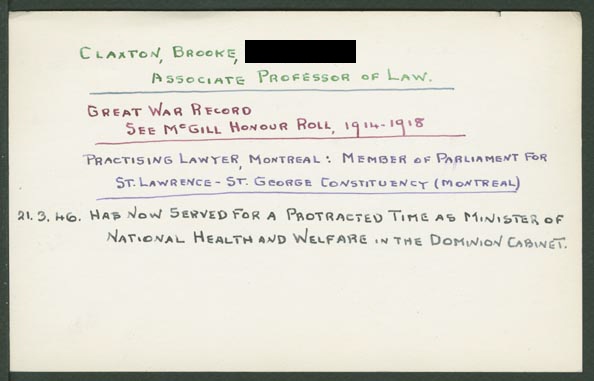 CLAXTON, BROOKE,
ASSOCIATE PROFESSOR OF LAW.
GREAT WAR RECORD
SEE McGILL HONOUR ROLL, 1914-1918
PRACTISING LAWYER, MONTREAL: MEMBER OF PARLIAMENT FOR
ST. LAWRENCE - ST. GEORGE CONSTITUENCY (MONTREAL)
21.3.46. HAS NOW SERVED FOR A PROTRACTED TIME AS MINISTER OF
NATIONAL HEALTH AND WELFARE IN THE DOMINION CABINET.